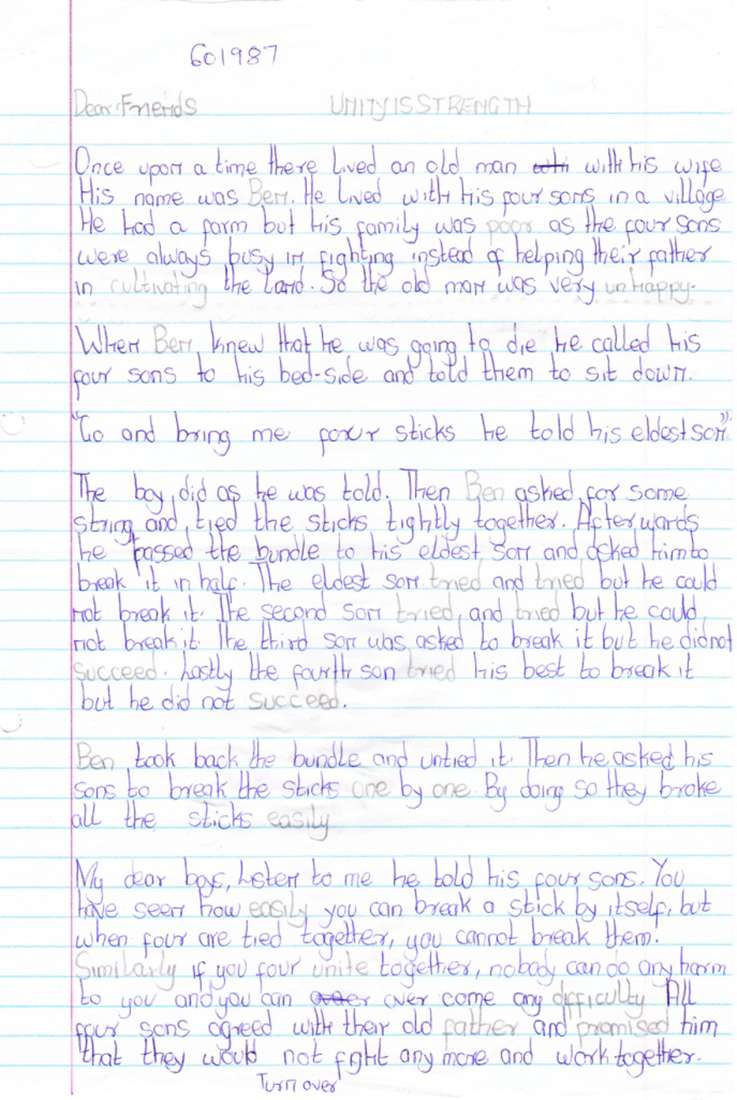 601987
Dear Friends UNITY IS STRENGTH
Once upon a time there lived an old man with his wife
His name was Ben. He lived with his four sons in a village
He had a farm but his family was poor as the four sons
were always busy in fighting instead of helping their father
in cultivating the land. So the old man was very unhappy.
When Ben knew that he was going to die he called his
four sons to his bed-side and told them to sit down.
"Go and bring me four sticks he told his eldest son".
The boy did as he was told. Then Ben asked for some
string and tied the sticks tightly together. Afterwards
he passed the bundle to his eldest son and asked him to
break it in half. The eldest son tried and tried but he could
not break it. The second son tried, and tried but he could
not break it. The third son was asked to break it but he did not
succeed. Lastly the fourth son tried his best to break it
but he did not succeed.
Ben took back the bundle and untied it. Then he asked his
sons to break the sticks one by one. By doing so they broke
all the sticks easily
My dear boys, Listen to me he told his four sons. You
have seen how easily you can break a stick by itself, but
when four are tied together, you cannot break them.
Similarly if you four unite together, nobody can do any harm
to you and you can over come any difficulty All
four sons agreed with their old father and promised him
that they would not fight any more and work together.
Turn over